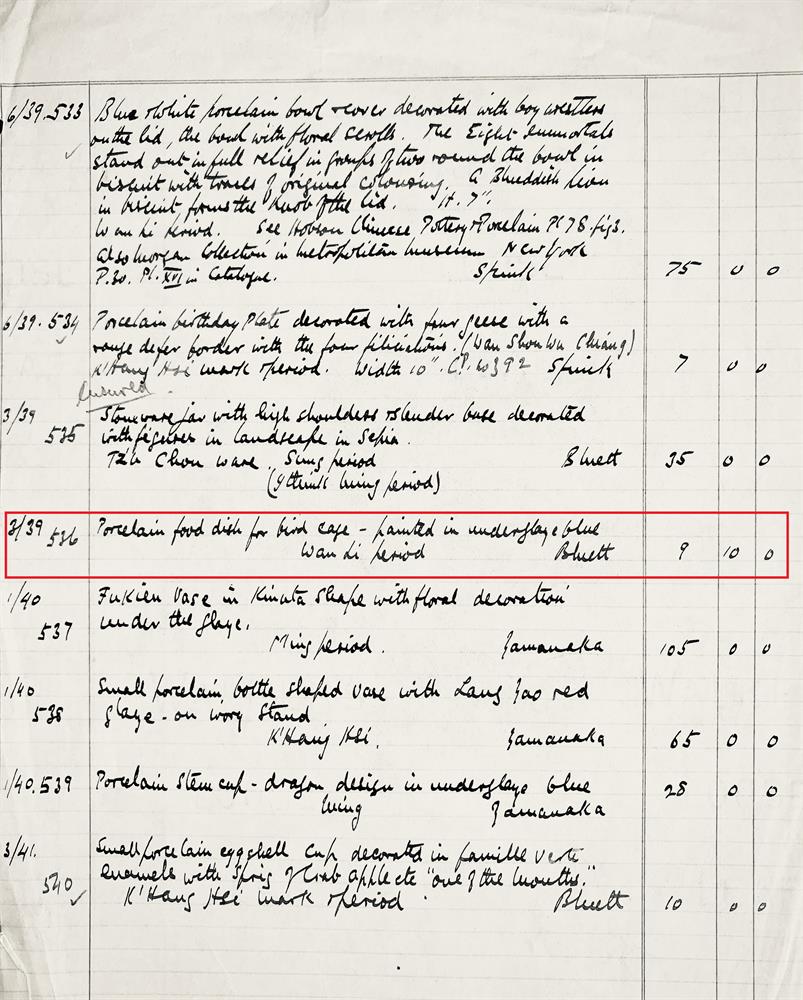 6/39. 533 Blue & White porcelain bowl & cover decorated with boy wrestlers
on the lid, the bowl with floral scrolls. The Eight Immortals
stand out in full relief in groups of two round the bowl in
biscuit with traces of original colouring. A Bhuddish lion
in biscuit forms the knob of the lid. H. 7".
Wan Li period. See Hobson Chinese Pottery & Porcelain Pl 78. fig 3.
also Morgan Collection in Metropolitan Museum New York
P. 30. Pl. XVI in Catalogue. Spink 75 0 0
6/39. 534 Porcelain birthday Plate decorated with four geese with a
border with the four (Wan Shou Wu Chiang)
K'Hang Hsi mark & period. Width 10". Spink 7 0 0
3/39 535 Stoneware jar with high shoulders & slender base decorated
with figures in landscape in Sepia.
Tz'u Chou ware. Sung period Bluett 35 0 0
(I think Ming period)
3/39 536 Porcelain food dish for bird cage - painted in underglaze blue
Wan Li period Bluett 9 10 0
1/40 537 Fukien Vase in Kinuta shape with floral decoration
under the glaze.
Ming period. Yamanaka 105 0 0
1/40 538 Small porcelain bottle shaped vase with Lang Yao red
glaze - on ivory stand
K'Hang Hsi. Yamanaka 65 0 0
1/40. 539 Porcelain Stem cup - dragon design in underglaze blue 28 0 0
Ming Yamanaka
3/41. 540 Small porcelain eggshell cup decorated in famille verte
enamels with sprig of Crab apple etc "one of the months."
K'Hang Hsi mark & period Bluett 10 0 0